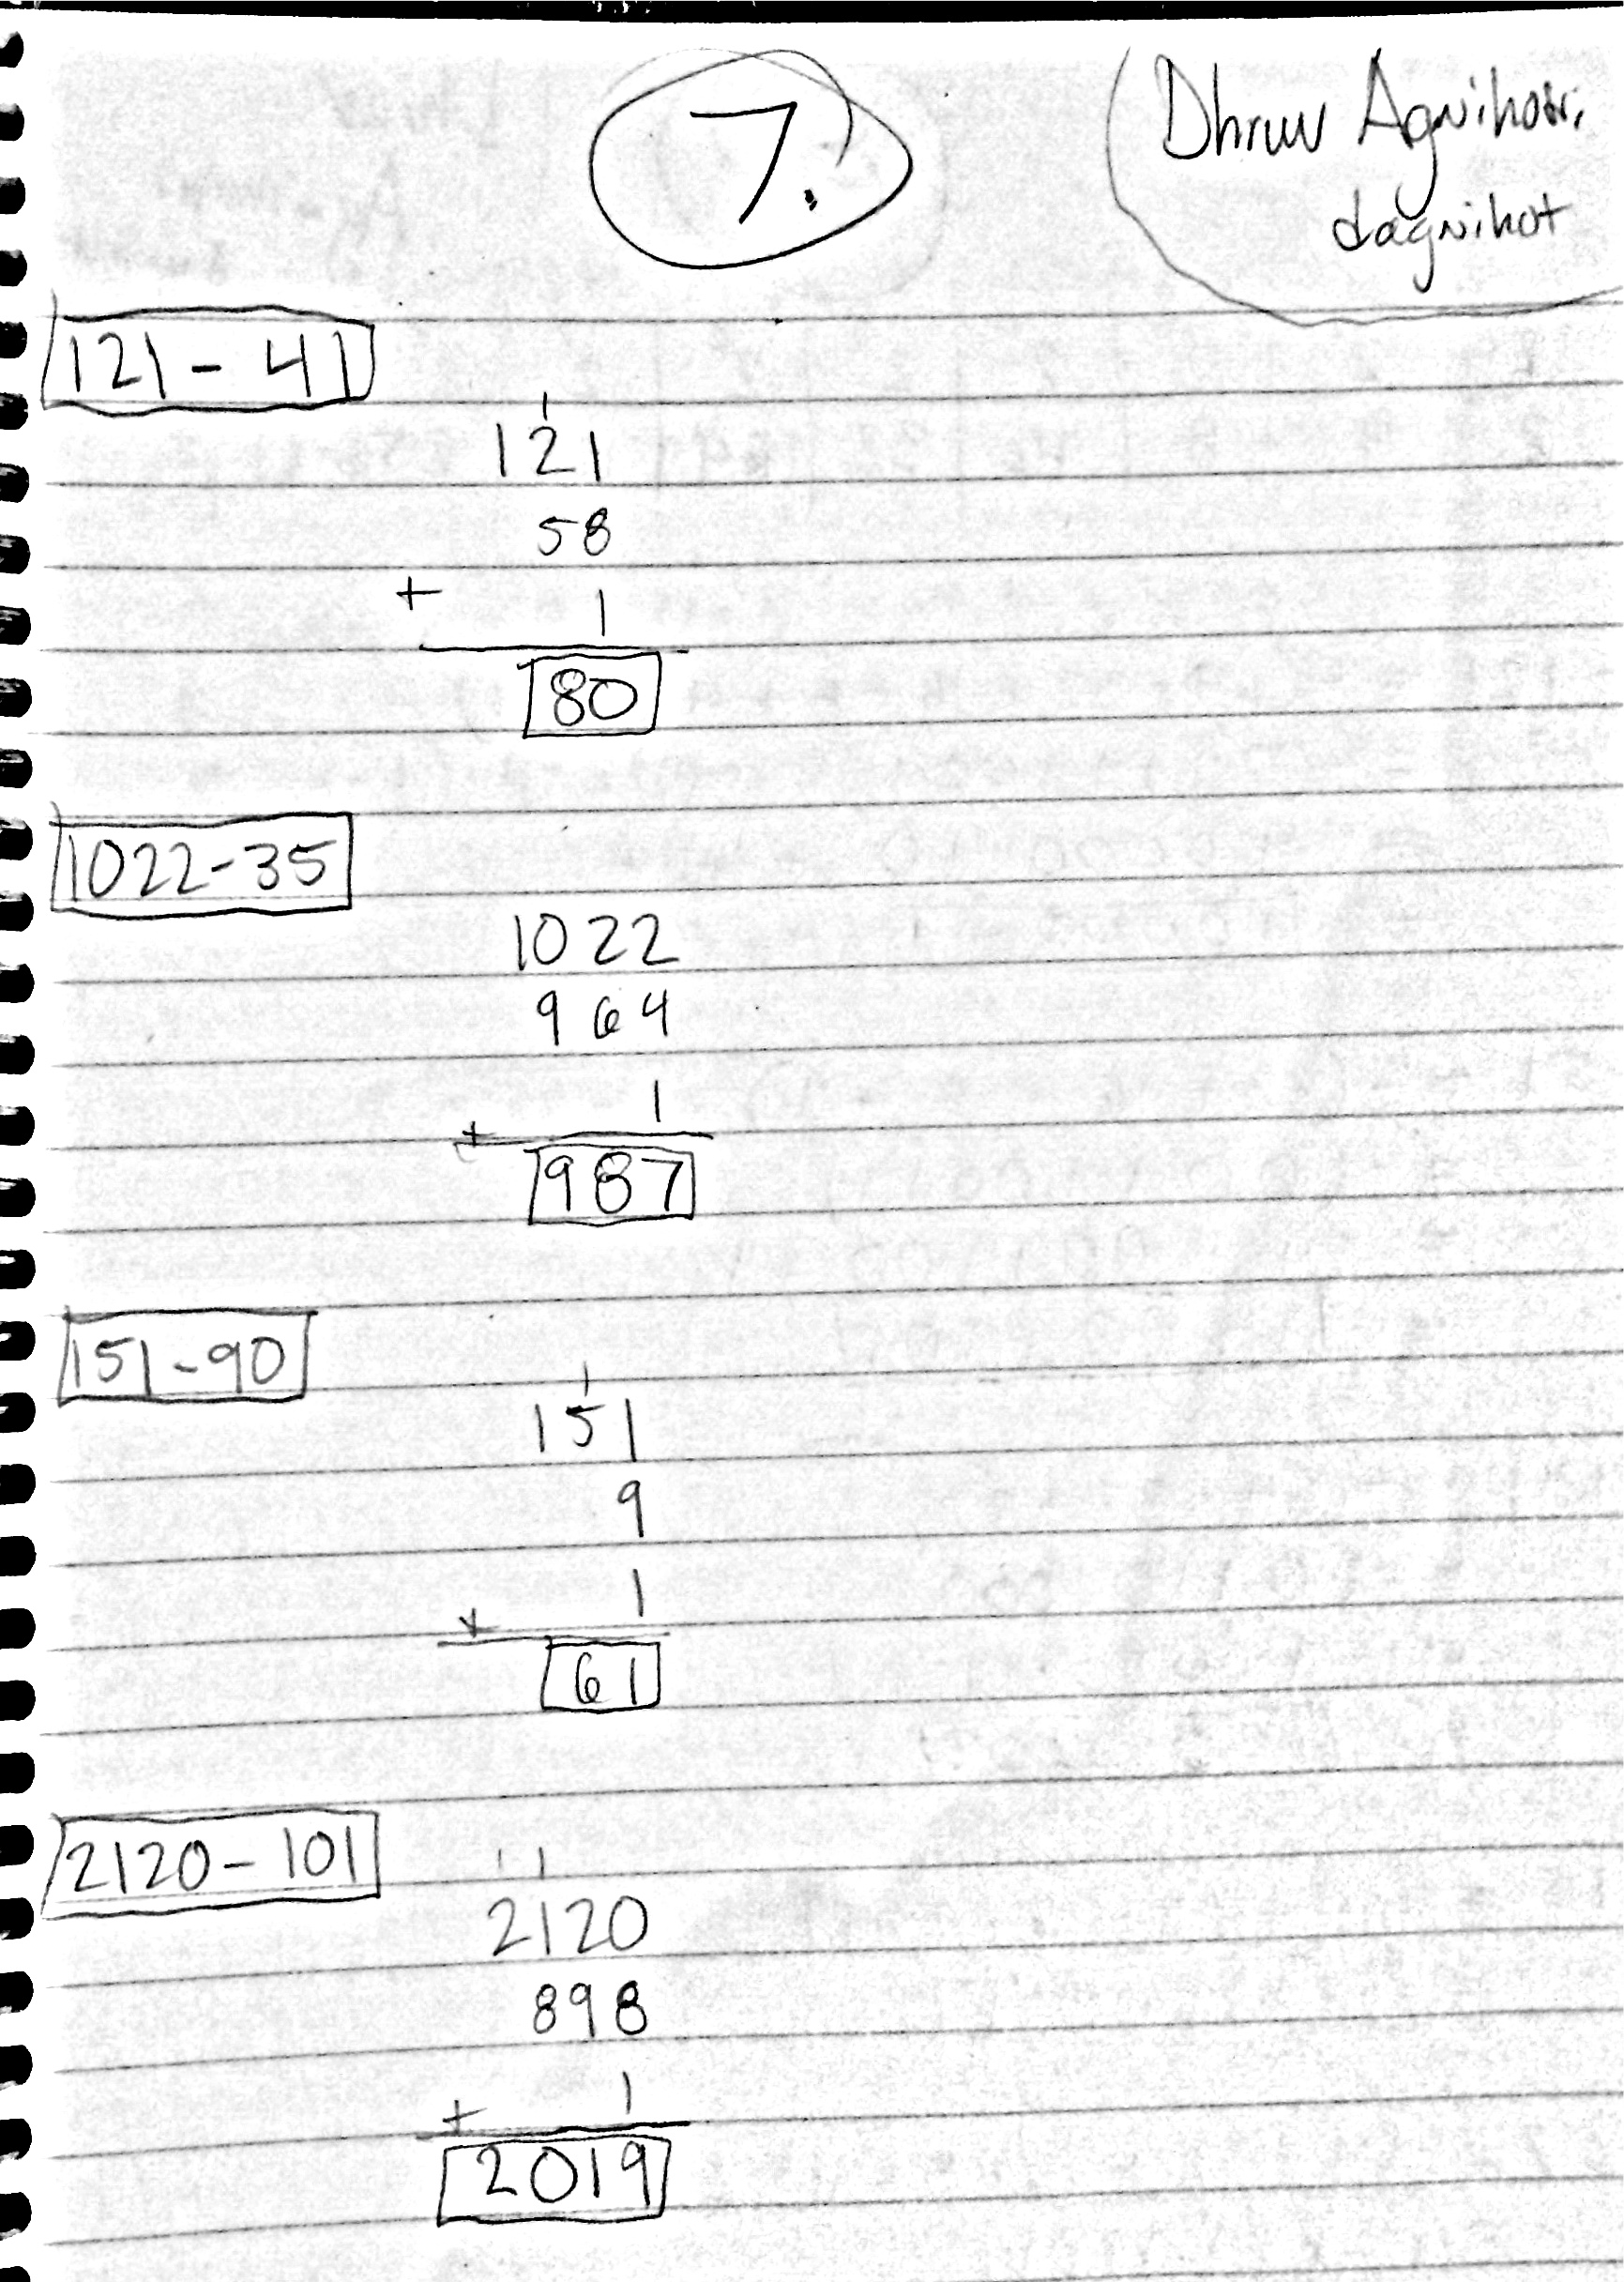 7.
Dhruv Agnihotri
dagnihot
121 - 41
1
121
58
+ 1
80
1022-35
1022
964
1
+
987
151-90
1
151
9
1
+
61
2120-101
1 1
2120
898
1
+
2019